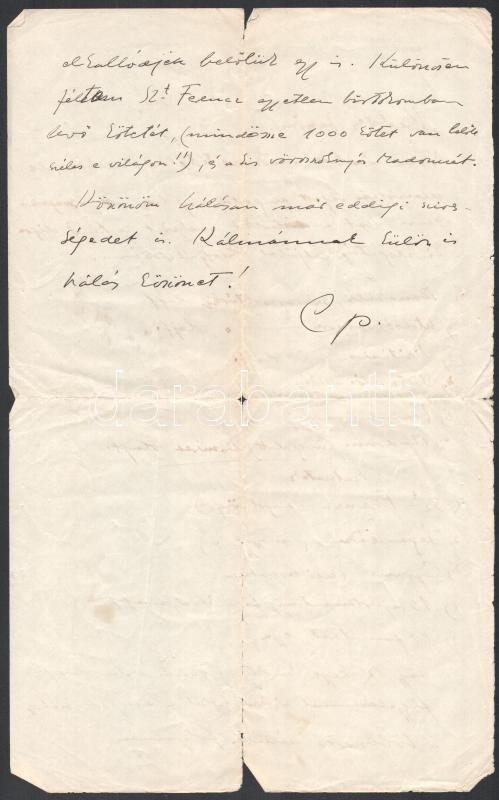 elkallódjék belőlük egy is. Különösen
féltem Szt Ferenc egyetlen birtokomban
levő kötetét, (mindössze 1000 kötet van belőle
széles e világon!!), és a kis vöröskönyvjás Madonnát.
Köszönöm hálásan már eddigi szives-
ségedet is. Kálmánnak külön is
hálás köszönet!
Cp.
darabanth